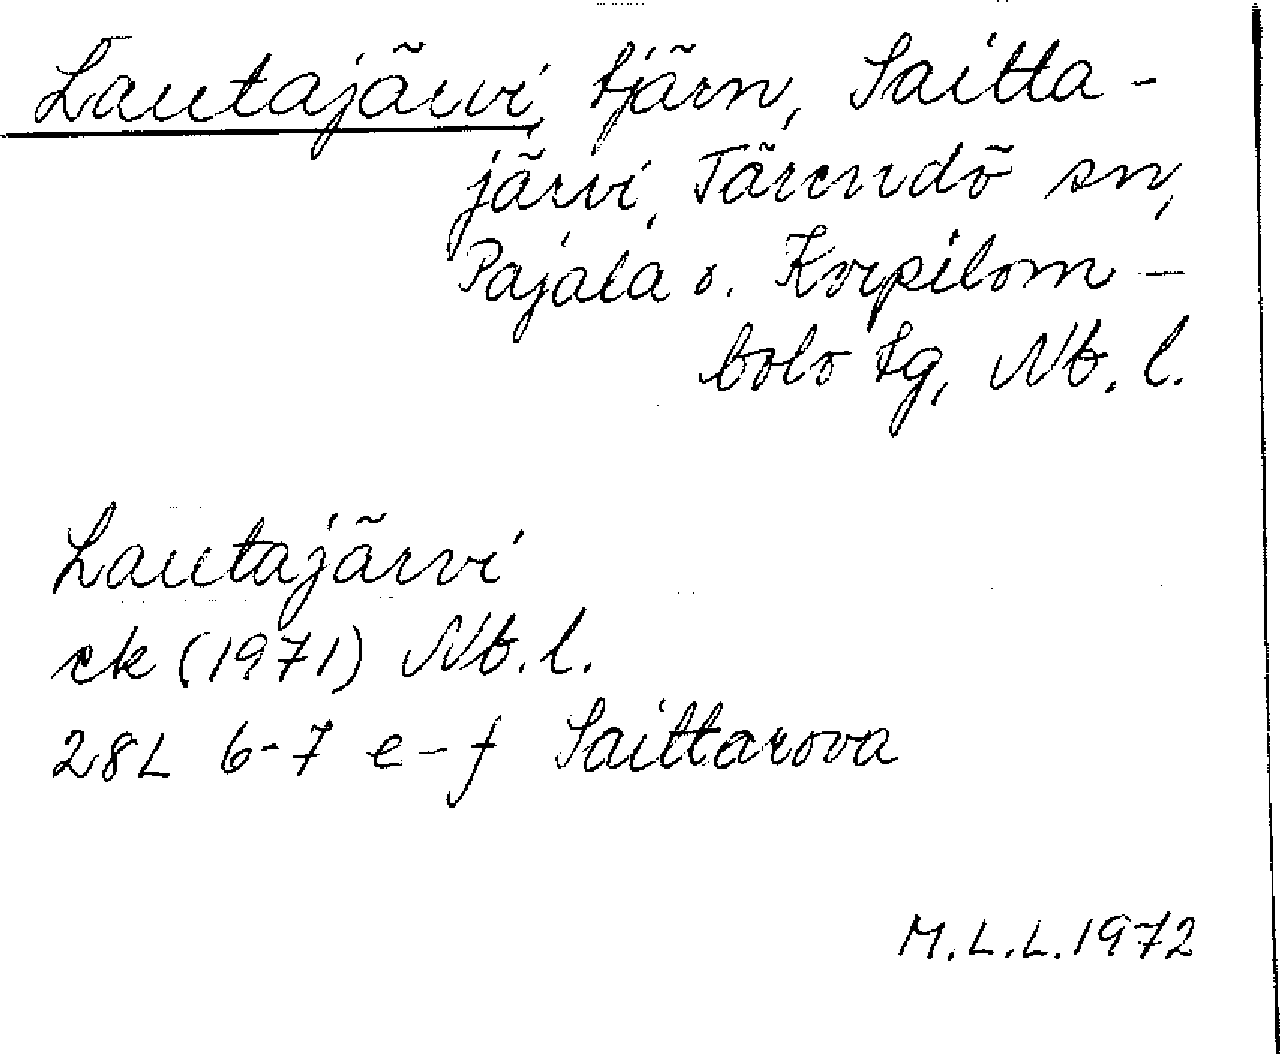 Lautajärvi, tjärn, Saitta-
järvi, Tärendö sn,
Pajala o. Korpilom-
bolo tg, Nb. l.
Lautajärvi
ek (1971) Nb. l.
28L 6-7 e-f Saittarova
M.L.L. 1972